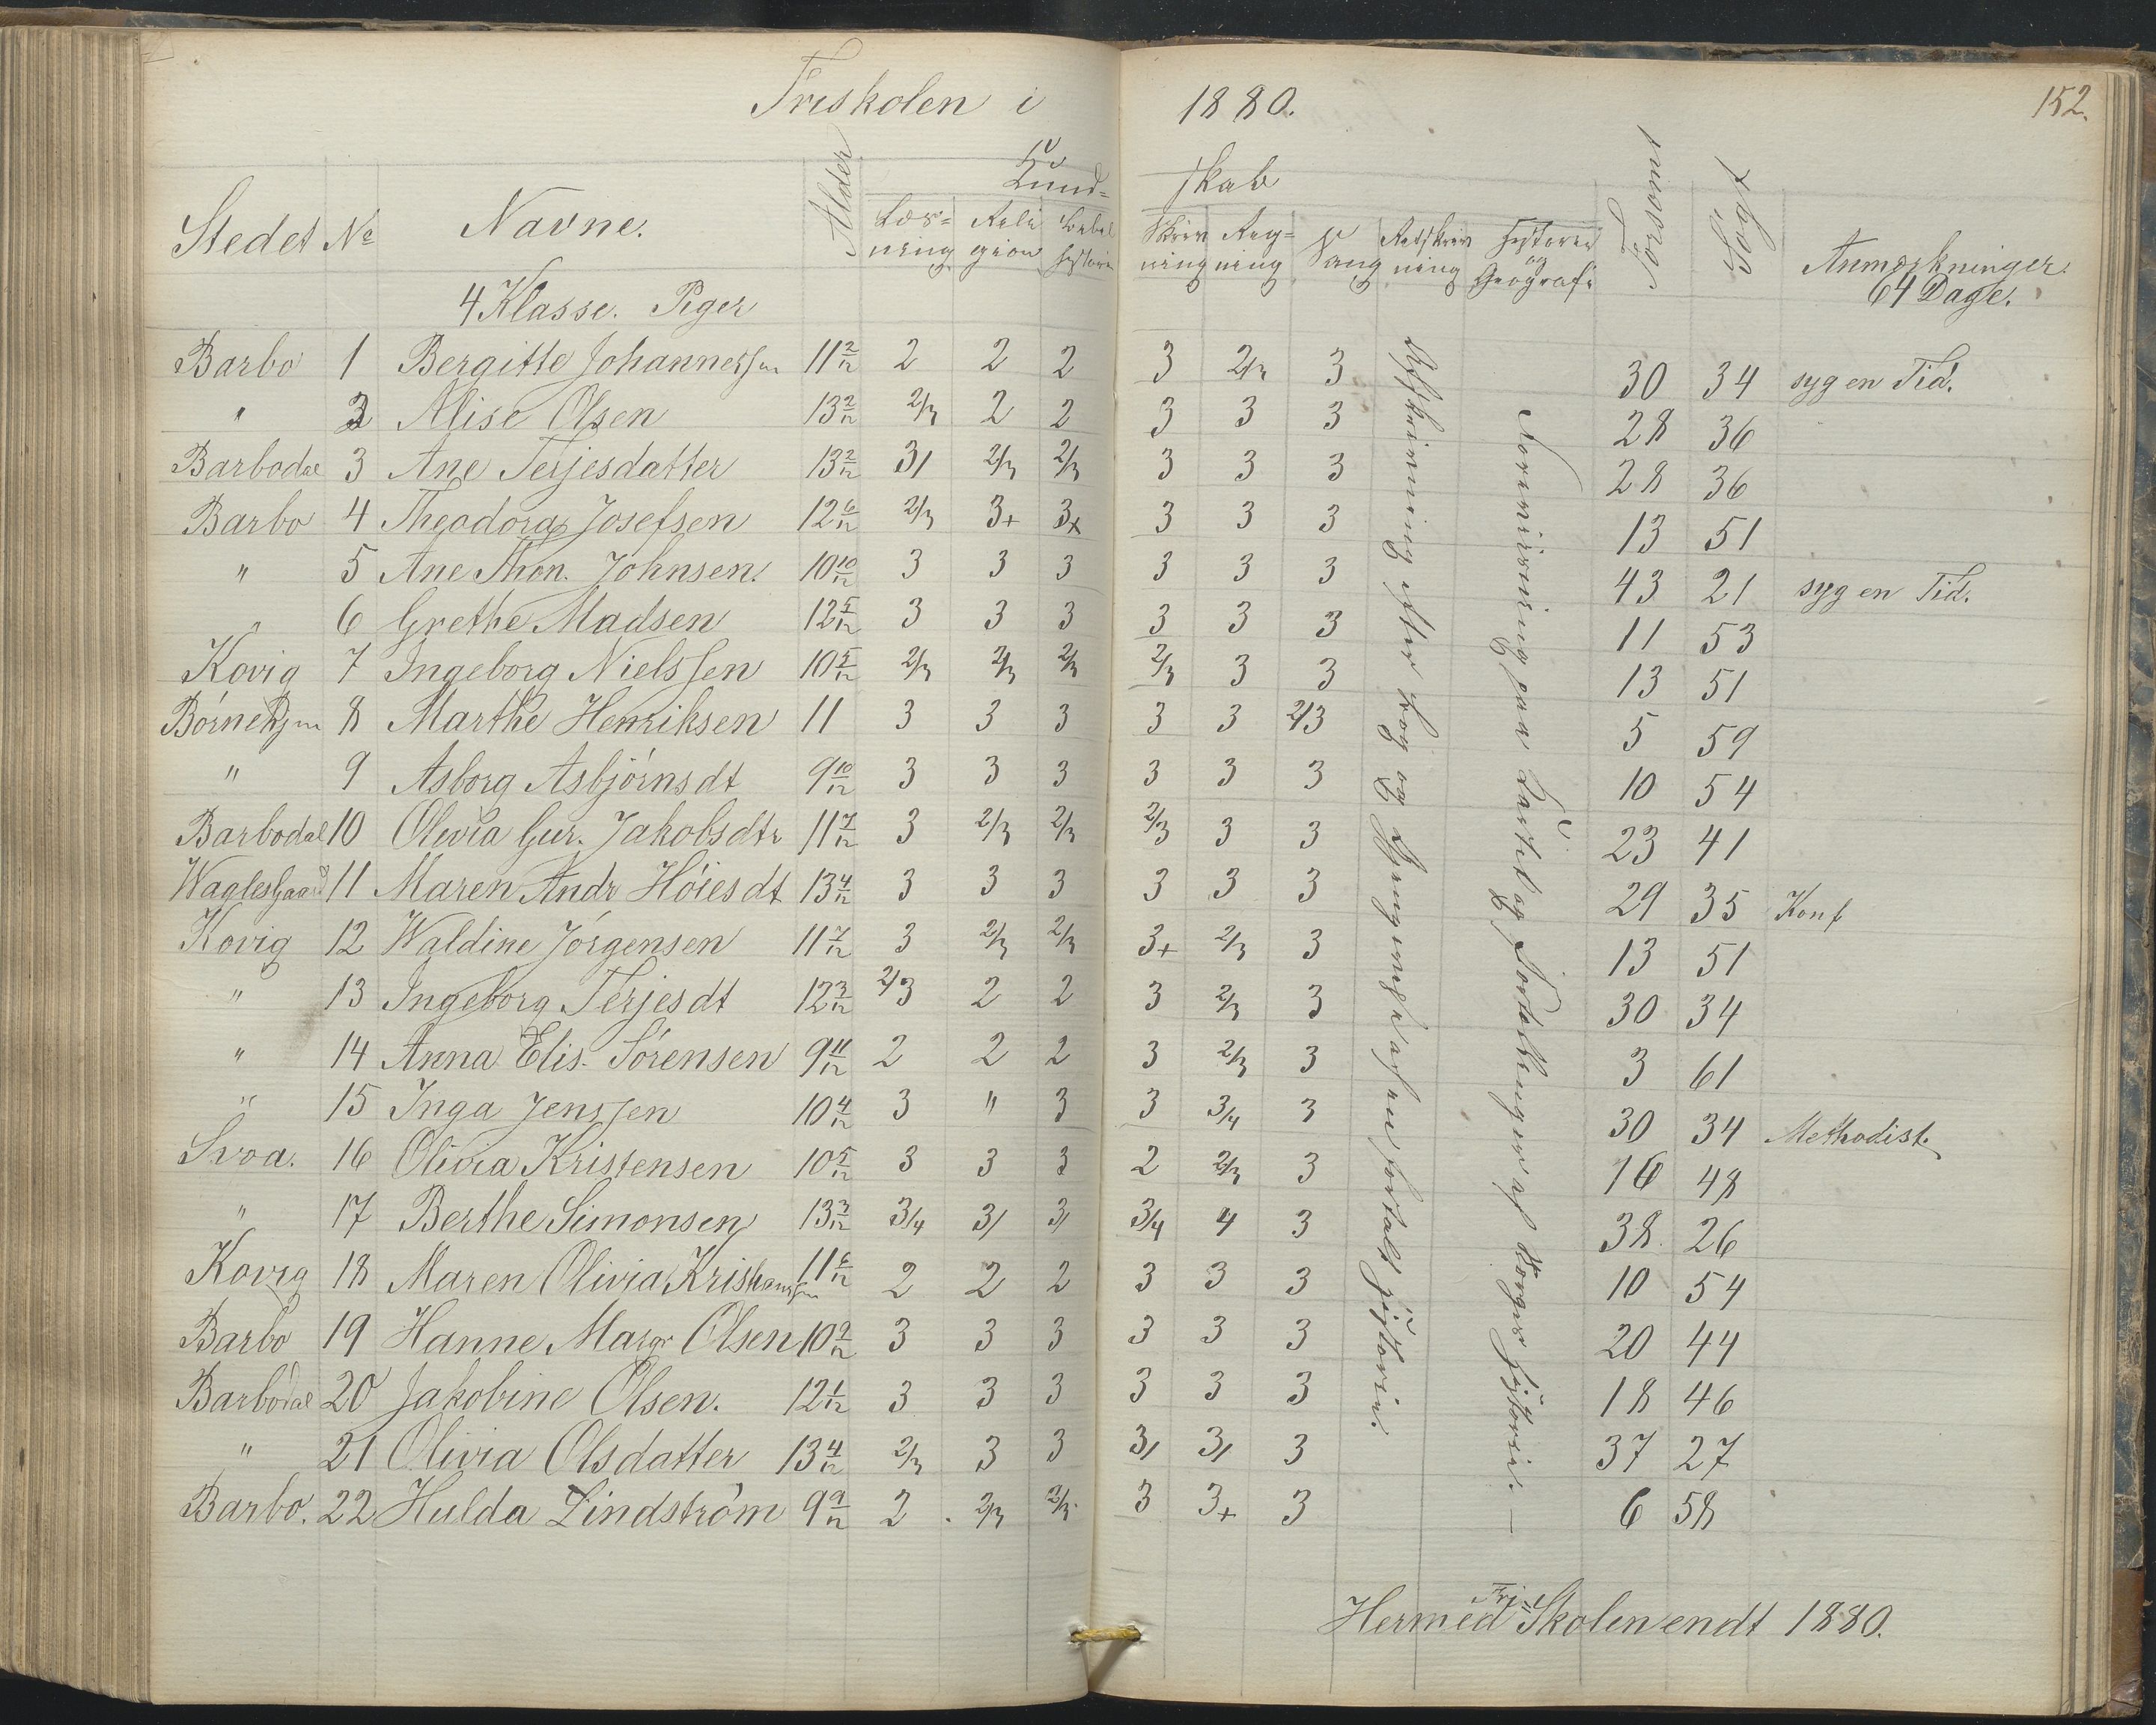 Friskolen i 1880. 152.
Stedet No Navne. Alder Kund= skab Forsømt Søgt Anmærkninger.
Læs= ning Reli gion Bibel historie Skriv ning Reg= ning Sang Retskriv ning Historie og Geografi
4 Klasse. Piger 64 Dage.
Barbo 1 Bergitte Johannessen 11 2/12 2 2 2 3 2/3 3 30 34 syg en Tid.
" 2 Alise Olsen 13 2/12 2/3 2 2 3 3 3 28 36
Barbodal 3 Ane Terjesdatter 13 2/12 3/ 2/3 2/3 3 3 3 28 36
Barbo 4 Theodora Josefsen 12 6/12 2/3 3+ 3+ 3 3 3 13 51
" 5 Ane Thon. Johnsen. 10 10/12 3 3 3 3 3 3 43 21 syg en Tid.
" 6 Grethe Madsen 12 5/12 3 3 3 3 3 3 11 53
Kovig 7 Ingeborg Nielssen 10 5/12 2/3 2/3 2/3 2/3 3 3 13 51
Børnehjm 8 Marthe Henriksen 11 3 3 3 3 3 2/3 5 59
" 9 Asborg Asbjörnsdt 9 10/12 3 3 3 3 3 3 10 54
Barbodal 10 Olivia Gur. Jakobsdtr 11 7/12 3 2/3 2/3 2/3 3 3 23 41
Waglesgaard 11 Maren Andr Höiesdt 13 4/12 3 3 3 3 3 3 29 35 Konf
Kovig 12 Waldine Jörgensen 11 7/12 3 2/3 2/3 3+ 2/3 3 13 51
" 13 Ingeborg Terjesdt 12 3/12 2/3 2 2 3 2/3 3 30 34
" 14 Anna Elis. Sörensen 9 11/12 2 2 2 3 2/3 3 3 61
" 15 Inga Jenssen 10 4/12 3 " 3 3 3/4 3 30 34 Methodist.
Svoa. 16 Olivia Kristensen 10 5/12 3 3 3 2 2/3 3 16 48
" 17 Berthe Simonsen 13 3/12 3/4 3/ 3/ 3/4 4 3 38. 26
Kovig 18 Maren Olivia Kristiansen 11 6/12 2 2 2 3 3 3 10 54
Barbo 19 Hanne Margr Olsen 10 9/12 3 3 3 3 3 3 20 44
Barbodal 20 Jakobine Olsen. 12 1/12 3 3 3 3 3 3 18 46
" 21 Olivia Olsdatter 13 4/12 2/3 3 3 3/ 3/ 3 37 27
Barbo. 22 Hulda Lindström 9 9/12 2 2/3 2/3 3 3+ 3 6 58
Afskrivning efter Bog og Gjengivelse af en fortalt Historie.
paa Kartet og Fortællinger af Norges Historie. —
Hermed Fri= Skolen endt 1880.